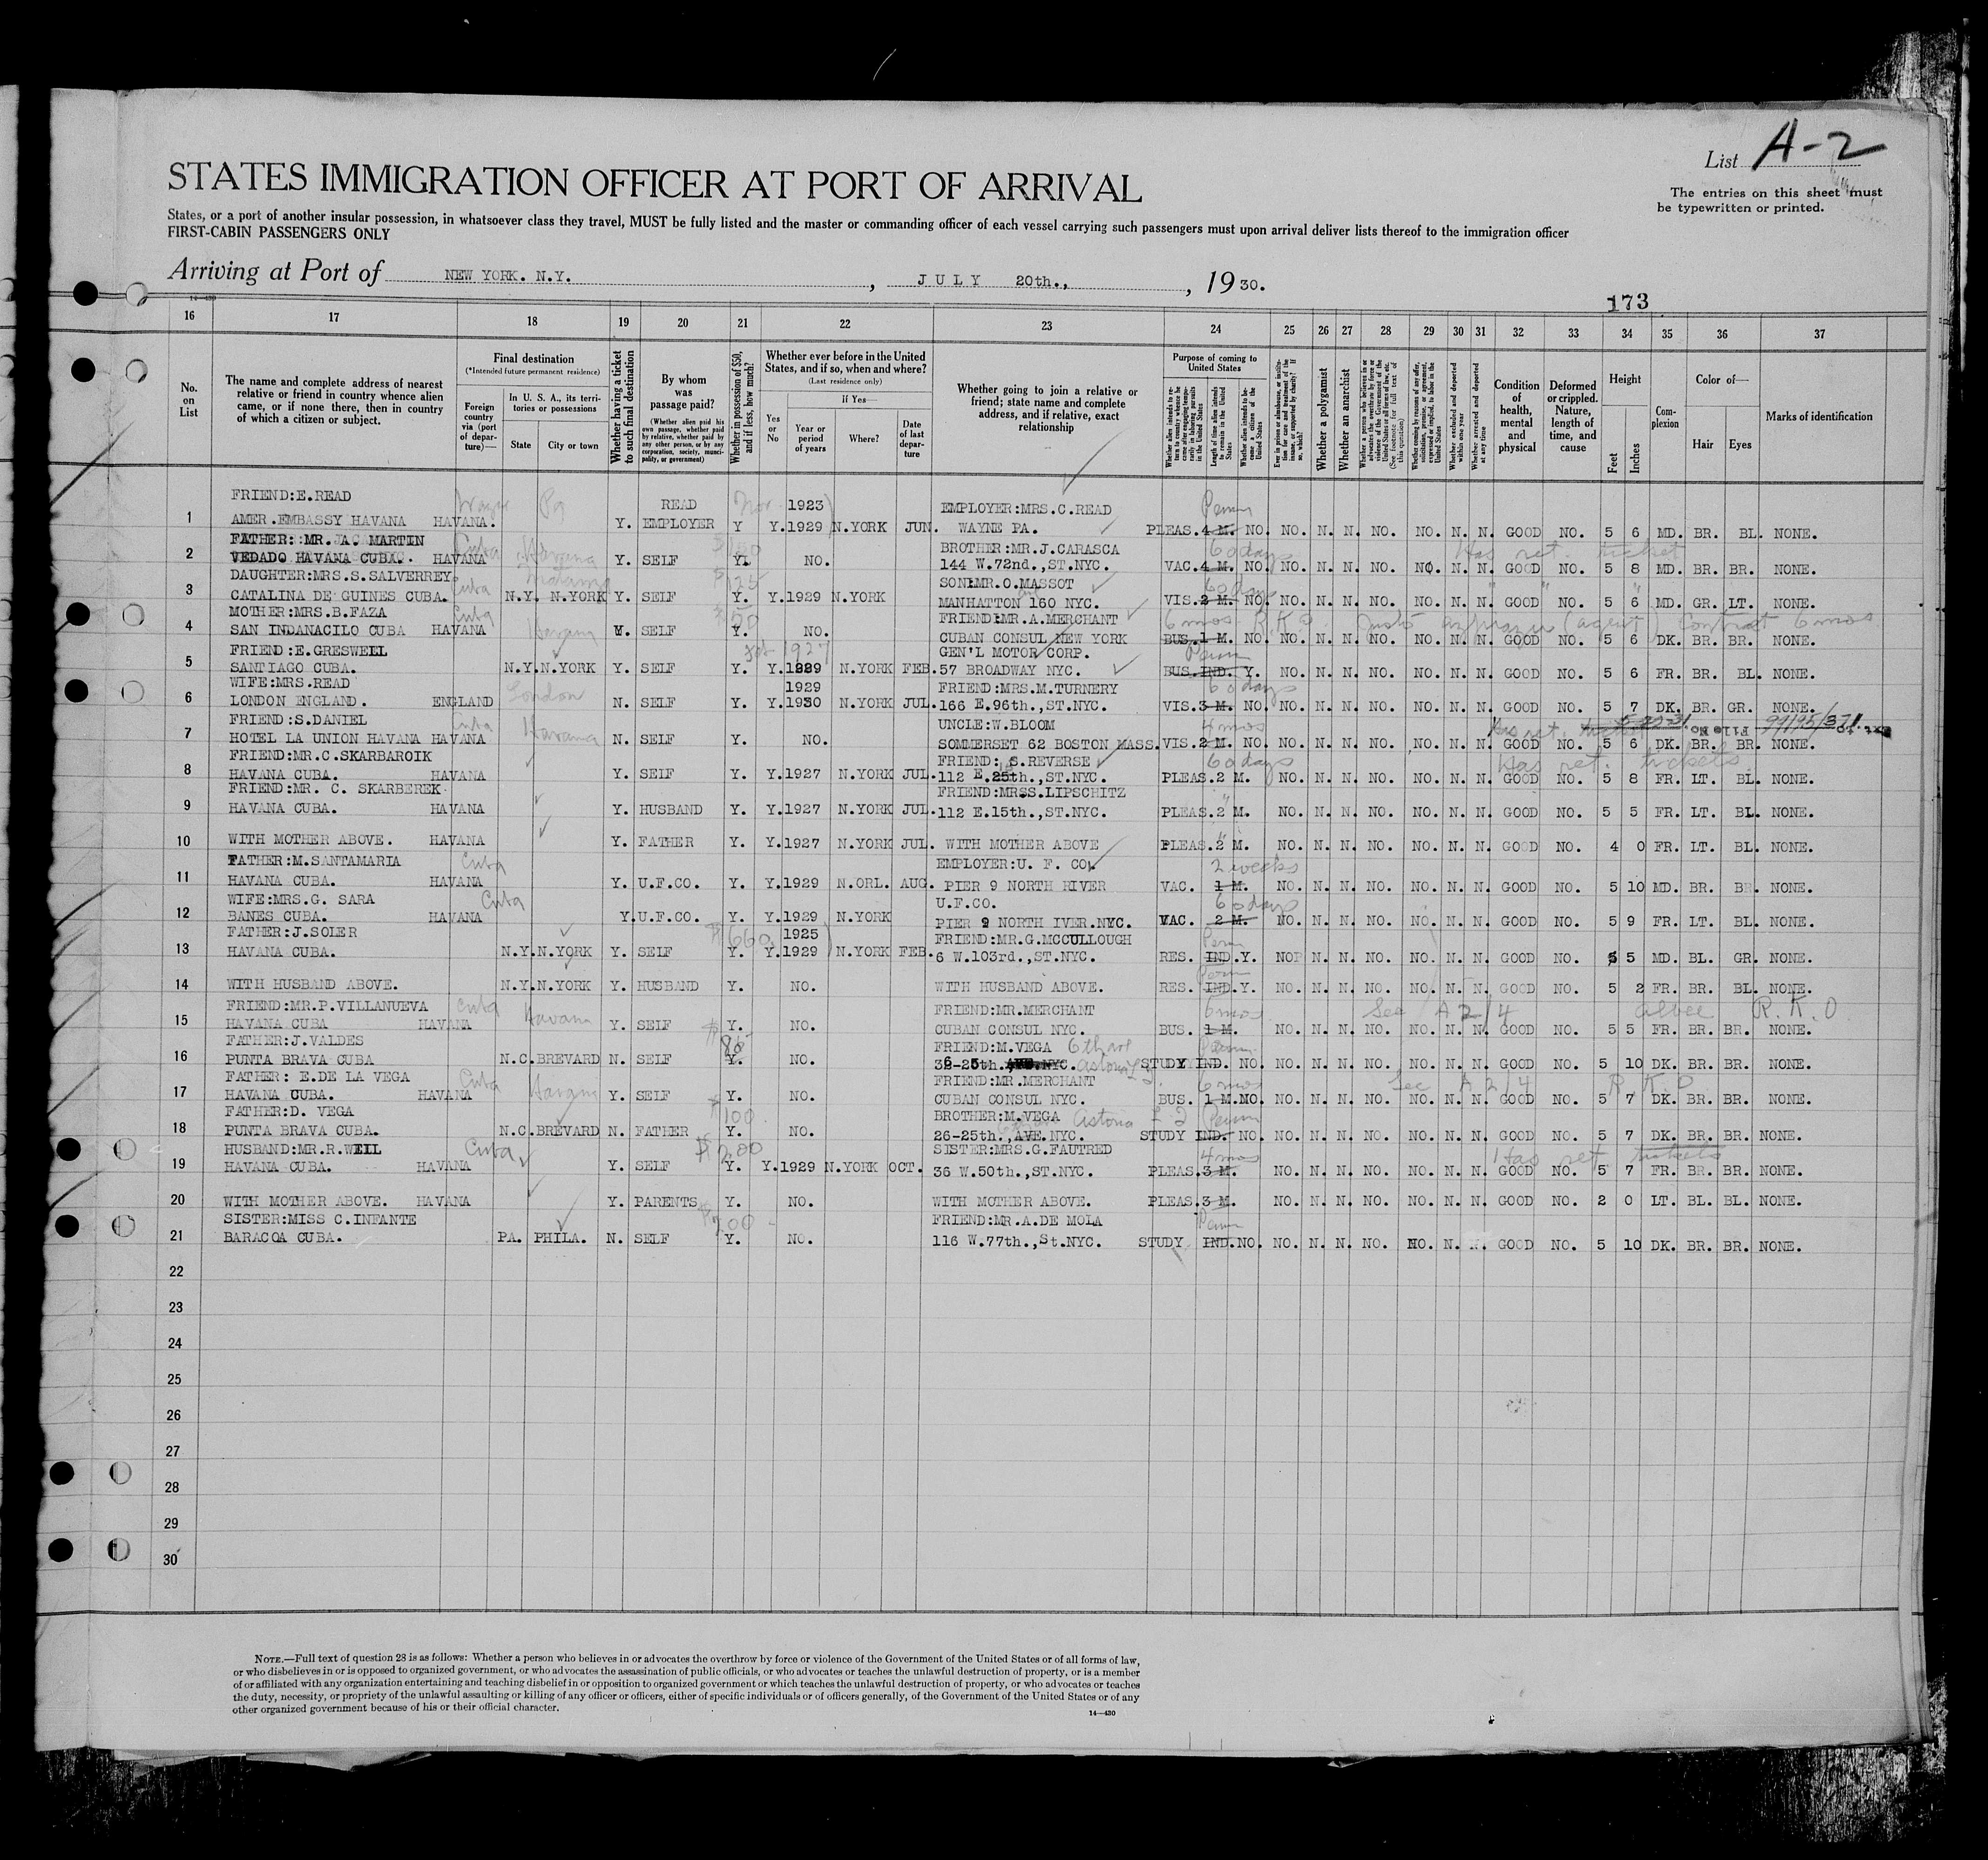 List A-2
The entries on this sheet must
be typewritten or printed.
STATES IMMIGRATION OFFICER AT PORT OF ARRIVAL
States, or a port of another insular possession, in whatsoever class they travel, MUST be fully listed and the master or commanding officer of each vessel carrying such passengers must upon arrival deliver lists thereof to the immigration officer
FIRST-CABIN PASSENGERS ONLY
Arriving at Port of NEW YORK. N.Y. , JULY 20th., , 1930.
173
16 17 18 19 20 21 22 23 24 25 26 27 28 29 30 31 32 33 34 35 36 37
No. on List
The name and complete address of nearest relative or friend in country whence alien came, or if none there, then in country of which a citizen or subject.
Final destination
(*Intended future permanent residence)
Foreign country via (port of departure)—
In U. S. A., its territories or possessions
State
City or town
Whether having a ticket to such final destination
By whom was passage paid?
(Whether alien paid his own passage, whether paid by relative, whether paid by any other person, or by any corporation, society, municipality, or government)
Whether in possession of $50, and if less, how much?
Whether ever before in the United States, and if so, when and where?
(Last residence only)
Yes or No
If Yes—
Year or period of years
Where?
Date of last departure
Whether going to join a relative or friend; state name and complete address, and if relative, exact relationship
Purpose of coming to United States
Length of time alien intends to remain in the United States
Whether alien intends to become a citizen of the United States
Whether a polygamist
Whether an anarchist
Whether excluded and deported within one year
Whether arrested and deported at any time
Condition of health, mental and physical
Deformed or crippled. Nature, length of time, and cause
Height
Feet
Inches
Complexion
Color of—
Hair
Eyes
Marks of identification
FRIEND:E.READ READ 1923 EMPLOYER:MRS.C.READ Perm
1 AMER.EMBASSY HAVANA HAVANA. Y. EMPLOYER Y Y.1929 N.YORK JUN. WAYNE PA. PLEAS. 4 M. NO. NO. N. N. NO. NO. N. N. GOOD NO. 5 6 MD. BR. BL. NONE.
FATHER:MR.A. MARTIN Cuba Havana BROTHER:MR.J.CARASCA 60 days Has ret. ticket
2 VEDADO HAVANA CUBA. HAVANA Y. SELF Y. NO. 144 W.72nd.,ST.NYC. VAC. 4 M. NO. NO. N. N. NO. NO. N. N. GOOD NO. 5 8 MD. BR. BR. NONE.
DAUGHTER:MRS.S.SALVERREY. Cuba $125 SON:MR.O.MASSOT 60 days
3 CATALINA DE GUINES CUBA. N.Y. N.YORK Y. SELF Y. Y.1929 N.YORK MANHATTON 160 NYC. VIS. 2 M. NO. NO. N. N. NO. NO. N. N. GOOD NO. 5 6 MD. GR. LT. NONE.
MOTHER:MRS.B.FAZA Cuba Havana $50 FRIEND:MR.A.MERCHANT 6 mos R.K.O. contract 6 mos
4 SAN INDANACILO CUBA HAVANA Y. SELF Y. NO. CUBAN CONSUL NEW YORK BUS. 1 M. NO. NO. N. N. NO. NO. N. N. GOOD NO. 5 6 DK. BR. BR. NONE.
FRIEND:E.GRESWELL 1927 GEN'L MOTOR CORP. Perm
5 SANTIAGO CUBA. N.Y. N.YORK Y. SELF Y. Y.1929 N.YORK FEB. 57 BROADWAY NYC. BUS. IND. Y. NO. N. N. NO. NO. N. N. GOOD NO. 5 6 FR. BR. BL. NONE.
WIFE:MRS.READ London 1929 FRIEND:MRS.M.TURNERY 60 days
6 LONDON ENGLAND. ENGLAND N. SELF Y. Y.1930 N.YORK JUL. 166 E.96th.,ST.NYC. VIS. 3 M. NO. NO. N. N. NO. NO. N. N. GOOD NO. 5 7 DK. BR. GR. NONE.
FRIEND:S.DANIEL Cuba Havana UNCLE:W.BLOOM 4 mos Has ret. File No. 99195/371
7 HOTEL LA UNION HAVANA HAVANA N. SELF Y. NO. SOMMERSET 62 BOSTON MASS. VIS. 2 M. NO. NO. N. N. NO. NO. N. N. GOOD NO. 5 6 DK. BR. BR. NONE.
FRIEND:MR.C.SKARBAROIK FRIEND: S.REVERSE 60 days Has ret. tickets
8 HAVANA CUBA. HAVANA Y. SELF Y. Y.1927 N.YORK JUL. 112 E.25th.,ST.NYC. PLEAS. 2 M. NO. N. N. NO. NO. N. N. GOOD NO. 5 8 FR. LT. BL. NONE.
FRIEND:MR. C. SKARBEREK FRIEND:MRSS.LIPSCHITZ
9 HAVANA CUBA. HAVANA Y. HUSBAND Y. Y.1927 N.YORK JUL. 112 E.15th.,ST.NYC. PLEAS. 2 M. NO. N. N. NO. NO. N. N. GOOD NO. 5 5 FR. LT. BL. NONE.
10 WITH MOTHER ABOVE. HAVANA Y. FATHER Y. Y.1927 N.YORK JUL. WITH MOTHER ABOVE PLEAS. 2 M. NO. N. N. NO. NO. N. N. GOOD NO. 4 0 FR. LT. BL. NONE.
FATHER:M.SANTAMARIA Cuba EMPLOYER:U. F. CO. 2 weeks
11 HAVANA CUBA. HAVANA Y. U.F.CO. Y. Y.1929 N.ORL. AUG. PIER 9 NORTH RIVER VAC. 1 M. NO. N. N. NO. NO. N. N. GOOD NO. 5 10 MD. BR. BR. NONE.
WIFE:MRS.G. SARA Cuba U.F.CO. 60 days
12 BANES CUBA. HAVANA Y. U.F.CO. Y. Y.1929 N.YORK PIER 9 NORTH IVER.NYC. VAC. 2 M. NO. N. N. NO. NO. N. N. GOOD NO. 5 9 FR. LT. BL. NONE.
FATHER:J.SOLER $660 1925 FRIEND:MR.G.MCCULLOUGH Perm
13 HAVANA CUBA. N.Y. N.YORK Y. SELF Y. Y.1929 N.YORK FEB. 6 W.103rd.,ST.NYC. RES. IND. Y. NO N. N. NO. NO. N. N. GOOD NO. 5 5 MD. BL. GR. NONE.
Perm
14 WITH HUSBAND ABOVE. N.Y. N.YORK Y. HUSBAND Y. NO. WITH HUSBAND ABOVE. RES. IND. Y. NO. N. N. NO. NO. N. N. GOOD NO. 5 2 FR. BR. BL. NONE.
FRIEND:MR.P.VILLANUEVA Cuba Havana FRIEND:MR.MERCHANT 6 mos See A 2/4 albee R.K.O.
15 HAVANA CUBA HAVANA Y. SELF Y. NO. CUBAN CONSUL NYC. BUS. 1 M. NO. N. N. NO. NO. N. N. GOOD NO. 5 5 FR. BR. BR. NONE.
FATHER:J.VALDES $85 FRIEND:M.VEGA 6th ave Perm
16 PUNTA BRAVA CUBA N.C. BREVARD N. SELF Y. NO. 36-25th. NYC. Astoria STUDY IND. NO. NO. N. N. NO. NO. N. N. GOOD NO. 5 10 DK. BR. BR. NONE.
FATHER: E.DE LA VEGA Cuba Havana FRIEND:MR.MERCHANT 6 mos See A 2/4 R.K.O
17 HAVANA CUBA. HAVANA Y. SELF Y. NO. CUBAN CONSUL NYC. BUS. 1 M. NO. NO. N. N. NO. NO. N. N. GOOD NO. 5 7 DK. BR. BR. NONE.
FATHER:D. VEGA $100 BROTHER:M.VEGA Astoria Perm
18 PUNTA BRAVA CUBA. N.C. BREVARD N. FATHER Y. NO. 26-25th.,AVE.NYC. STUDY IND. NO. NO. N. N. NO. NO. N. N. GOOD NO. 5 7 DK. BR. BR. NONE.
HUSBAND:MR.R.WEILL Cuba $200 SISTER:MRS.G.FAUTRED 4 mos Has ret tickets
19 HAVANA CUBA. HAVANA Y. SELF Y. Y.1929 N.YORK OCT. 36 W.50th.,ST.NYC. PLEAS. 3 M. NO. N. N. NO. NO. N. N. GOOD NO. 5 7 FR. BR. BR. NONE.
20 WITH MOTHER ABOVE. HAVANA Y. PARENTS Y. NO. WITH MOTHER ABOVE. PLEAS. 3 M. NO. N. N. NO. NO. N. N. GOOD NO. 2 0 LT. BL. BL. NONE.
SISTER:MISS C.INFANTE $200 FRIEND:MR.A.DE MOLA Perm
21 BARACOA CUBA. PA. PHILA. N. SELF Y. NO. 116 W.77th.,St.NYC. STUDY IND. NO. NO. N. N. NO. NO. N. N. GOOD NO. 5 10 DK. BR. BR. NONE.
22
23
24
25
26
27
28
29
30
NOTE.—Full text of question 28 is as follows: Whether a person who believes in or advocates the overthrow by force or violence of the Government of the United States or of all forms of law,
or who disbelieves in or is opposed to organized government, or who advocates the assassination of public officials, or who advocates or teaches the unlawful destruction of property, or is a member
of or affiliated with any organization entertaining and teaching disbelief in or opposition to organized government or which teaches the unlawful destruction of property, or who advocates or teaches
the duty, necessity, or propriety of the unlawful assaulting or killing of any officer or officers, either of specific individuals or of officers generally, of the Government of the United States or of any
other organized government because of his or their official character.
14—430